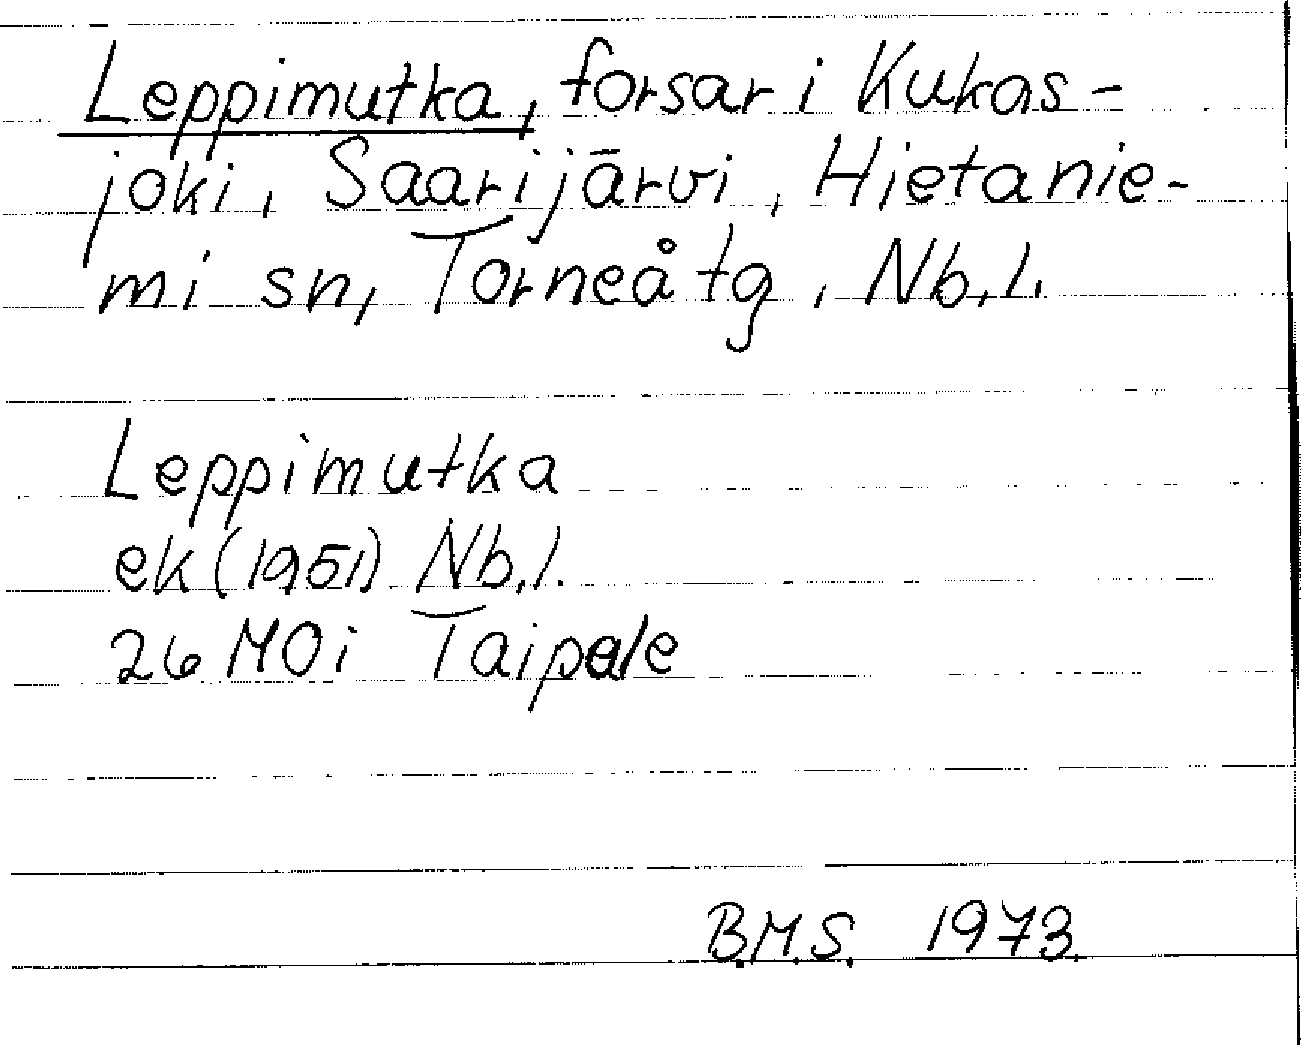 Leppimutka, forsar i Kukas-
joki, Saarijärvi, Hietanie-
mi sn, Torneå tg, Nb.l.
Leppimutka
ek (1951) Nb.l.
26 M0i Taipale
B.M.S. 1973.